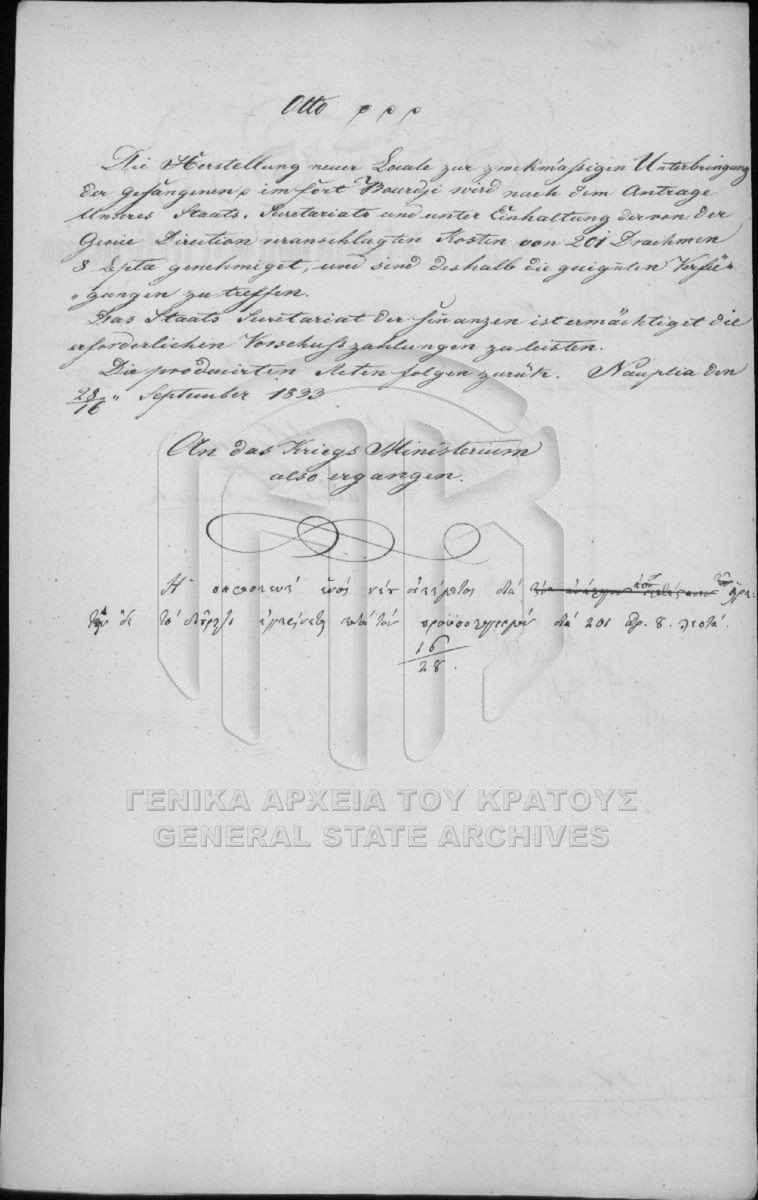 Otto p p p
Die Herstellung neuer Locale zur zwekmäßigen Unterbringung
der Gefangenen im Fort Bourdji wird nach dem Antrage
Unseres Staats-Secretariats und unter Einhaltung der von der
Genie Direction veranschlagten Kosten von 201 Drachmen
8 Lepta genehmiget, und sind deshalb die geeigneten Verfü-
„gungen zu treffen.
Das Staats Secretariat der Finanzen ist ermächtiget die
erforderlichen Vorschußzahlungen zu leisten.
Die producirten Acten folgen zurück. Nauplia den
28/16 „ September 1833
An das Kriegs Ministerium
also ergangen.
Ἡ κατασκευὴ ἑνὸς νέου οἰκήματος διὰ
εἰς τὸ ἐγκρίνεται κατὰ τὸν προϋπολογισμὸν διὰ 201 δρ. 8 λεπτά.
16/28.
ΓΕΝΙΚΑ ΑΡΧΕΙΑ ΤΟΥ ΚΡΑΤΟΥΣ
GENERAL STATE ARCHIVES